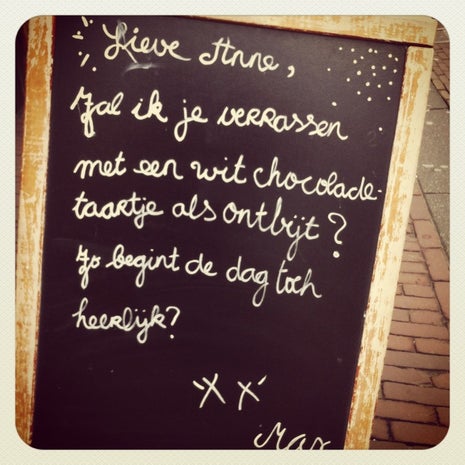 Lieve Anne,
Zal ik je verrassen
met een wit chocolade-
taartje als ontbijt?
Zo begint de dag toch
heerlijk?
xx
Max